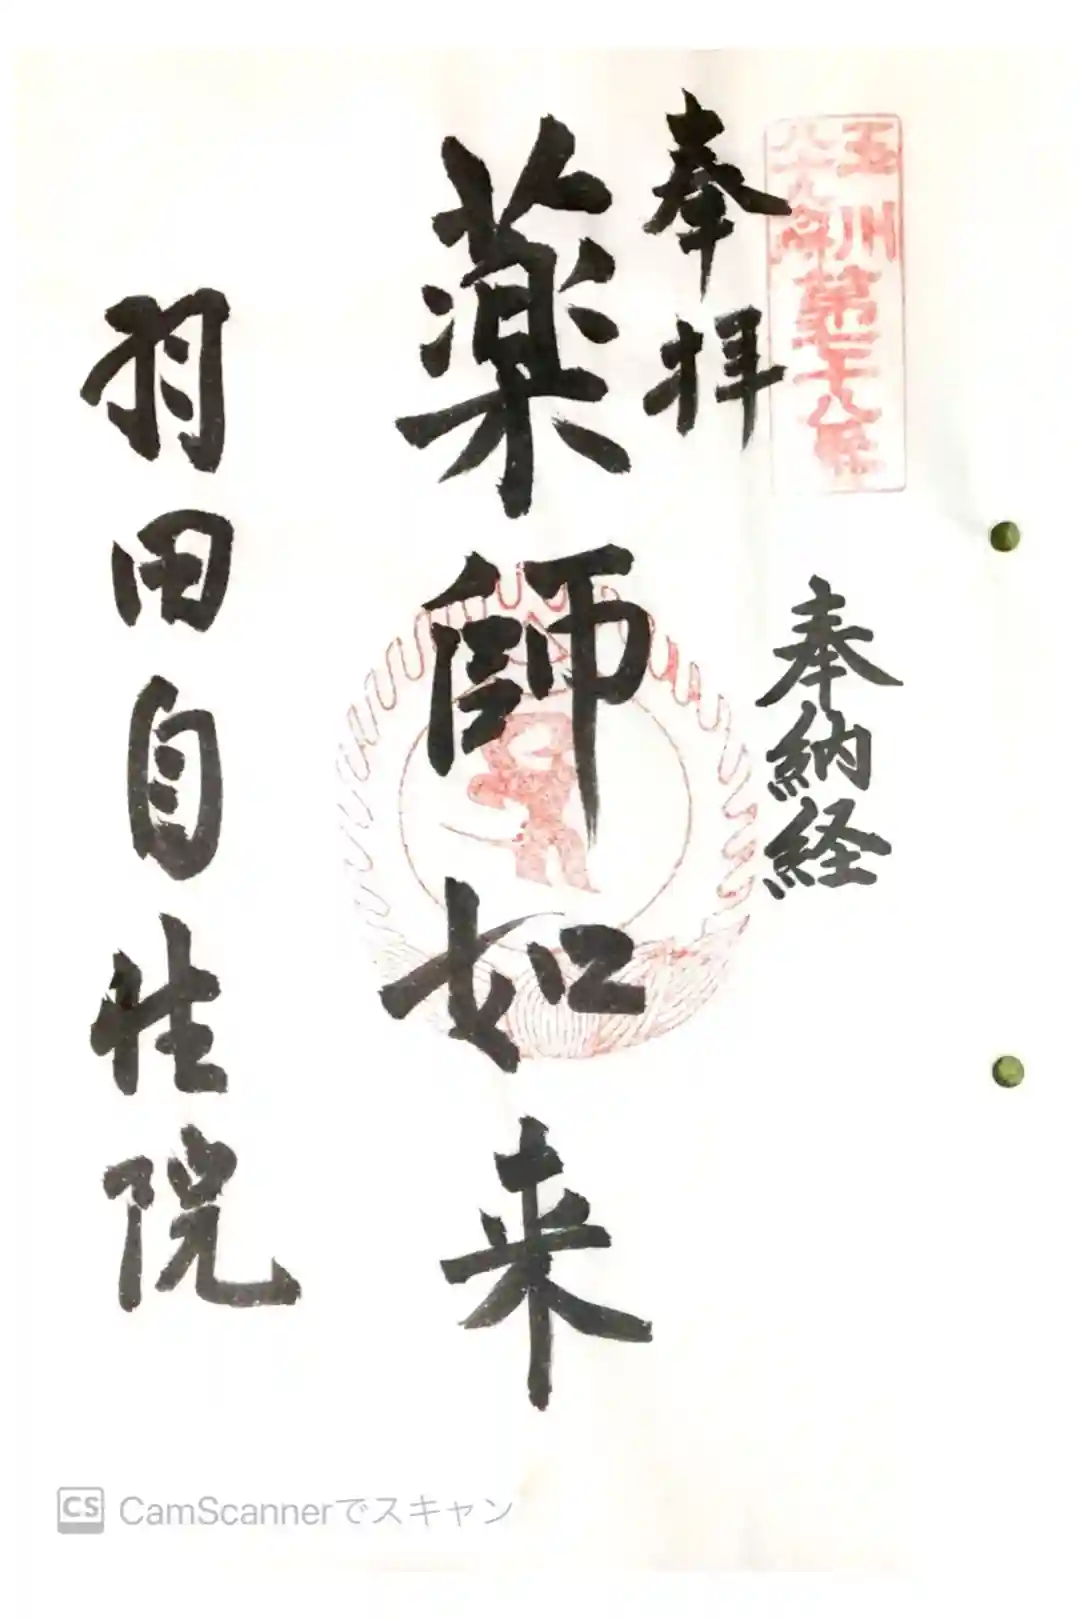 玉川
八十八ヶ所
第七十八番
奉拝
奉納経
薬師如来
羽田自性院
CS CamScannerでスキャン